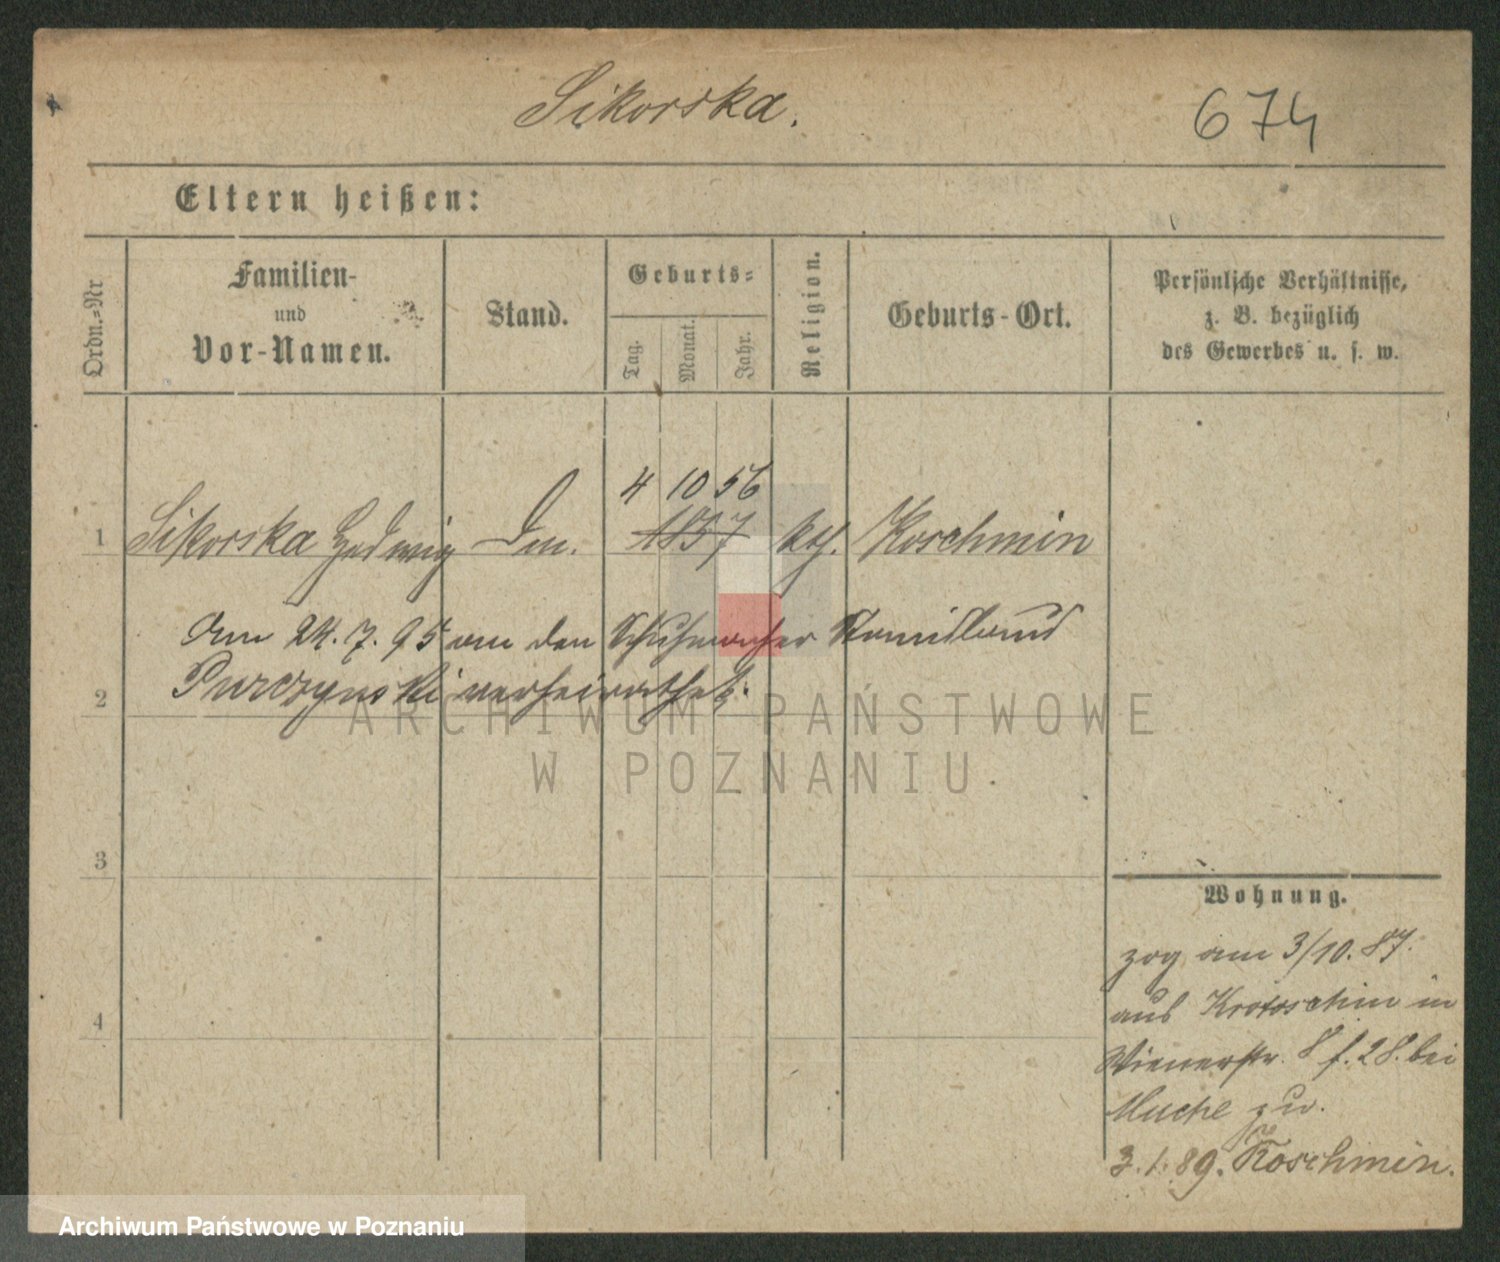 Sikorska.
674
Eltern heißen:
Ordn.=Nr
Familien-
und
Vor-Namen.
Stand.
Geburts=
Tag.
Monat.
Jahr.
Religion.
Geburts-Ort.
Persönliche Verhältnisse,
z. B. bezüglich
des Gewerbes u. s. w.
4 10 56
1 Sikorska Hedwig 1857 kth. Koschmin
Am 24. 7. 95 an den Schuhmacher
2 Purczynski verheirathet.
3
4
Wohnung.
zog am 3/10. 87.
aus Krotoschin in
Wienerstr. 8 f. 28. bei
Muche zu.
3. 1. 89. Koschmin.
ARCHIWUM PAŃSTWOWE
W POZNANIU
Archiwum Państwowe w Poznaniu